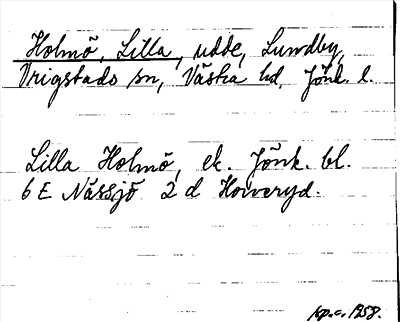 Holmö, Lilla, udde, Lundby,
Vrigstads sn, Västra hd, Jönk. l.
Lilla Holmö, ek. Jönk. bl.
6 E Nässjö 2 d Horveryd.
kp.c. 1958.